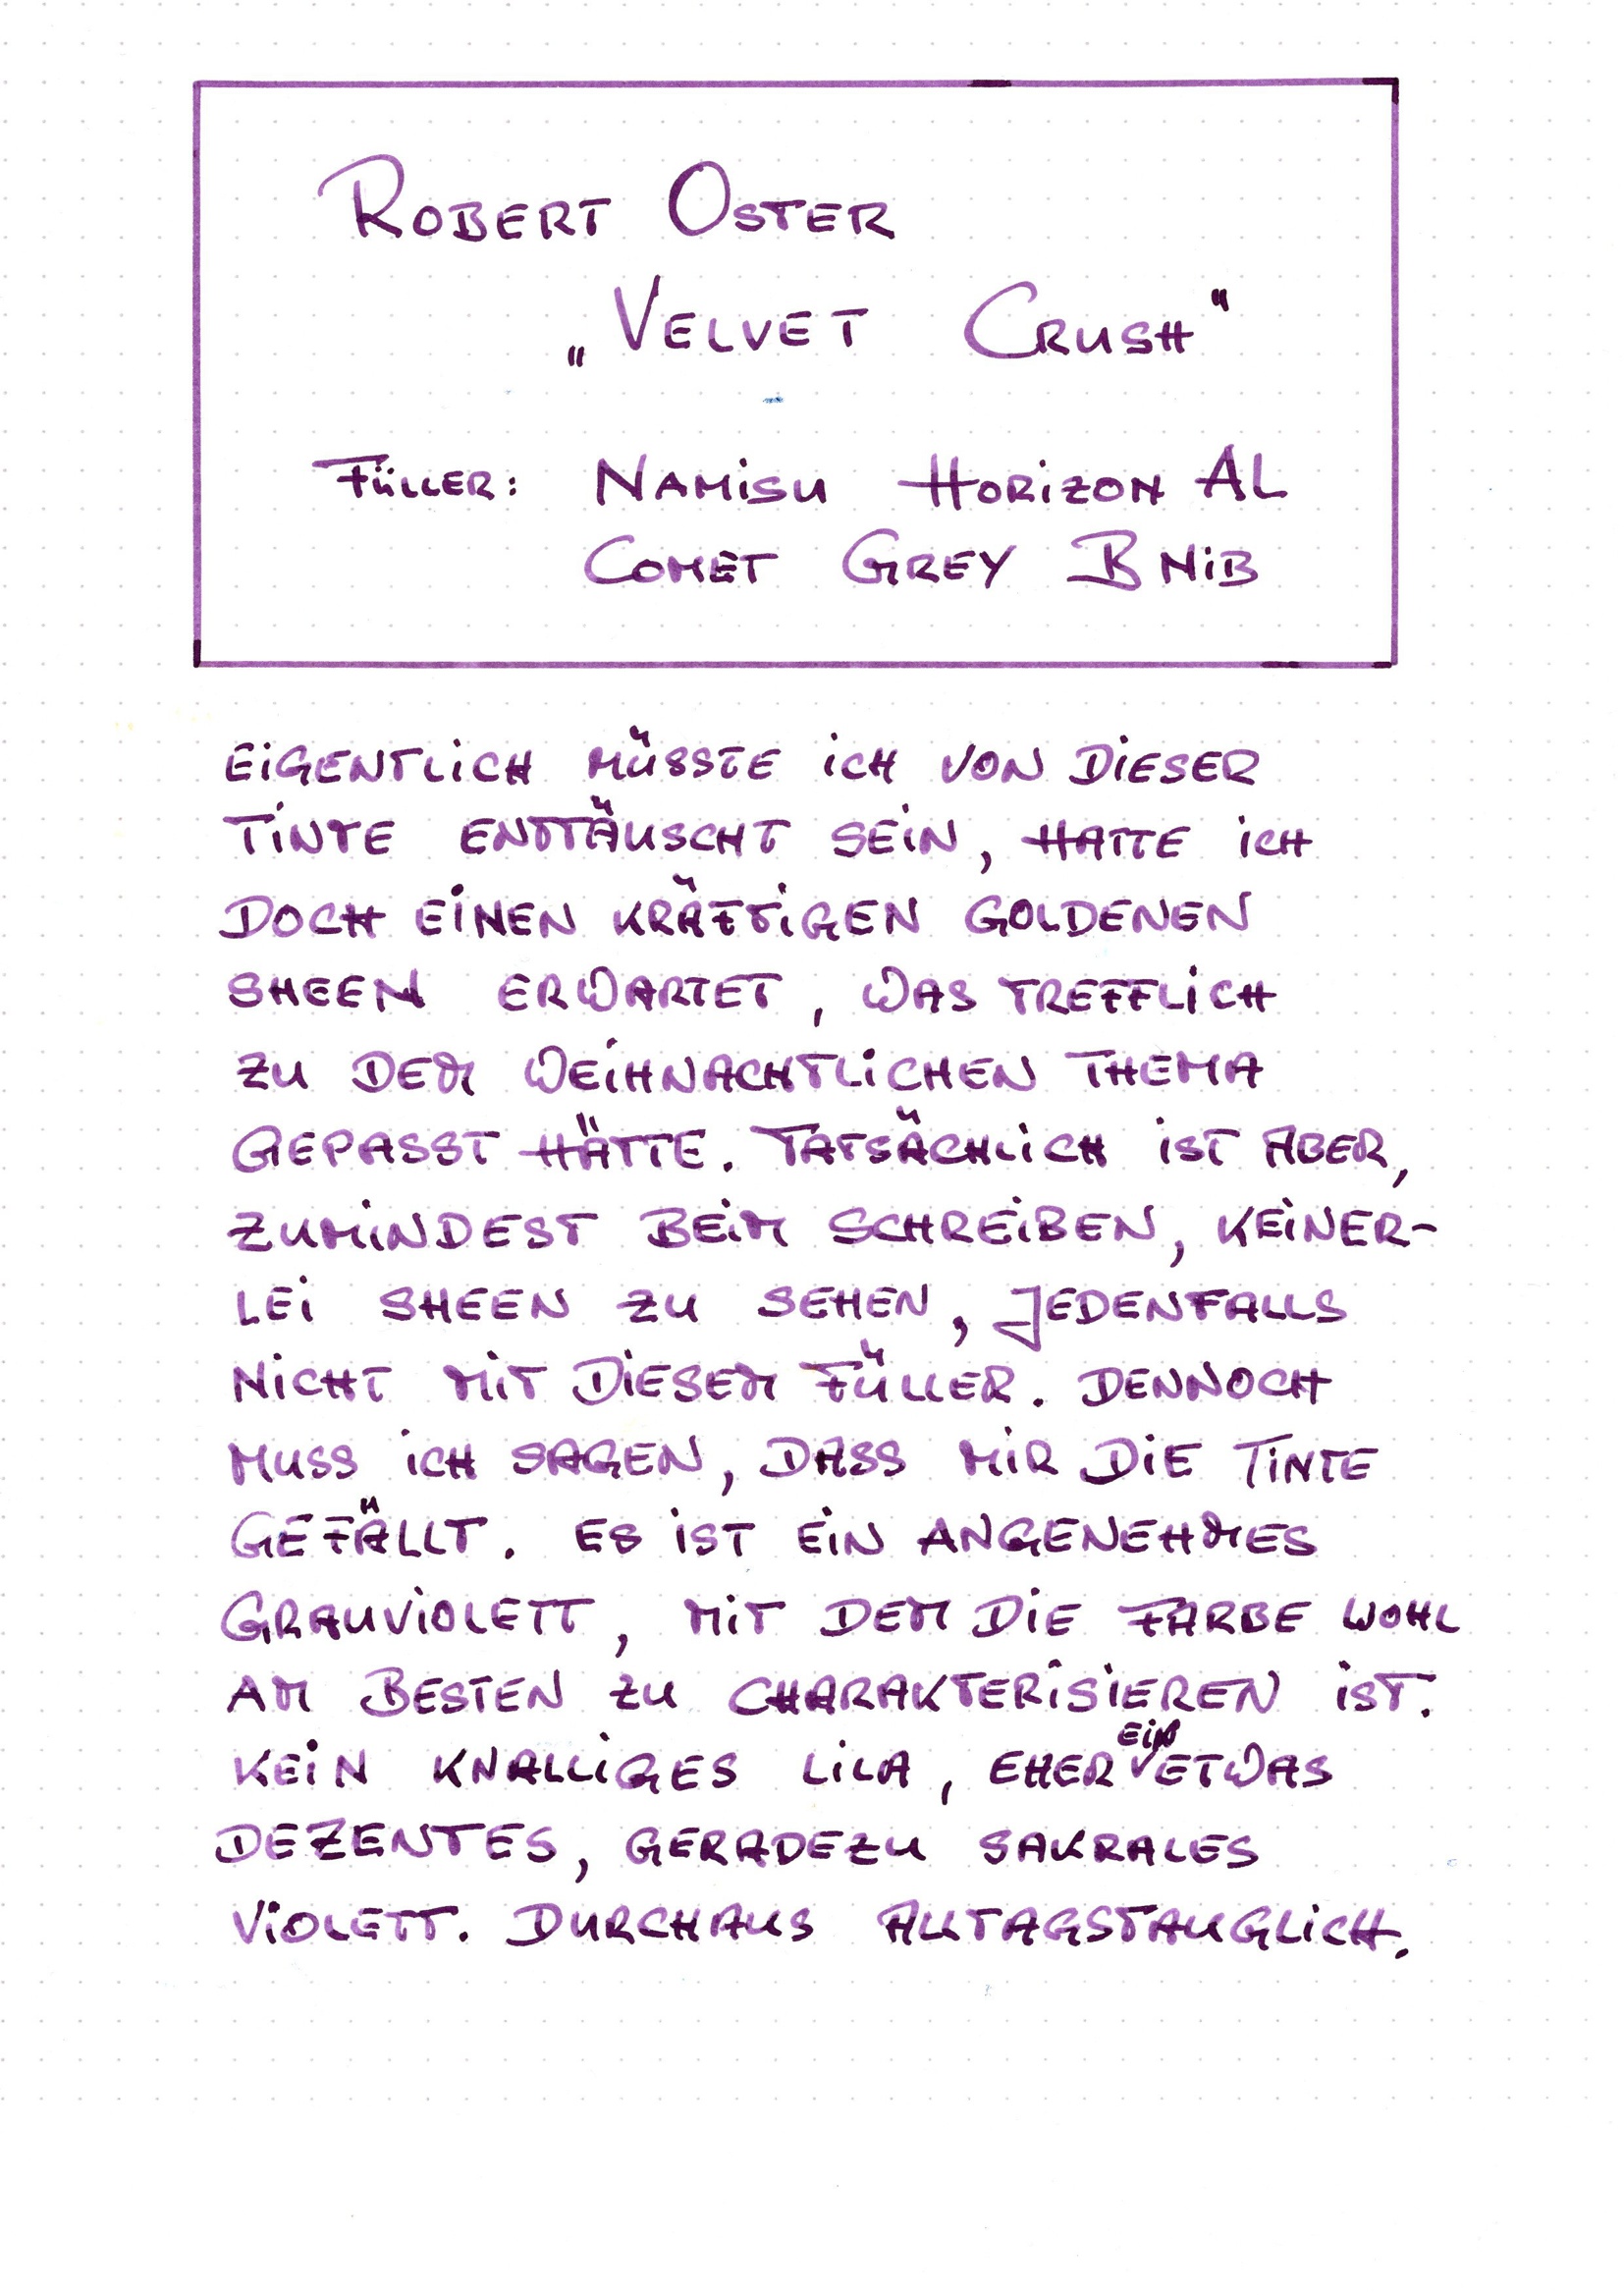 ROBERT OSTER
„VELVET CRUSH"
FÜLLER: NAMISU HORIZON AL
COMET GREY B NIB
EIGENTLICH MÜSSTE ICH VON DIESER
TINTE ENTTÄUSCHT SEIN, HATTE ICH
DOCH EINEN KRÄFTIGEN GOLDENEN
SHEEN ERWARTET, WAS TREFFLICH
ZU DEM WEIHNACHTLICHEN THEMA
GEPASST HÄTTE. TATSÄCHLICH IST ABER,
ZUMINDEST BEIM SCHREIBEN, KEINER-
LEI SHEEN ZU SEHEN, JEDENFALLS
NICHT MIT DIESEM FÜLLER. DENNOCH
MUSS ICH SAGEN, DASS MIR DIE TINTE
GEFÄLLT. ES IST EIN ANGENEHMES
GRAUVIOLETT, MIT DEM DIE FARBE WOHL
AM BESTEN ZU CHARAKTERISIEREN IST.
KEIN KNALLIGES LILA, EHER EIN ETWAS
DEZENTES, GERADEZU SAKRALES
VIOLETT. DURCHAUS ALLTAGSTAUGLICH.